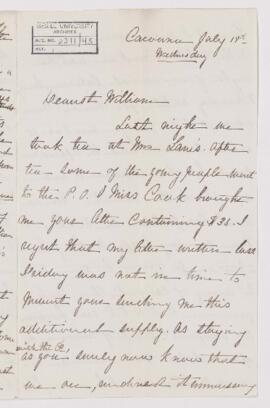 McGILL UNIVERSITY
ARCHIVES
ACC. NO. 2211/45
REF.
Cacouna July 18th
Wednesday
Dearest William
Last night we
took tea at Mrs Lane's. After
tea some of the young people went
to the P.O. & Miss Cook brought
me your letter containing $38. I
regret that my letter written last
Friday was not in time to
prevent your sending me this
additional supply. As staying
with the
as you surely now know that
we are, renders it unnecessary